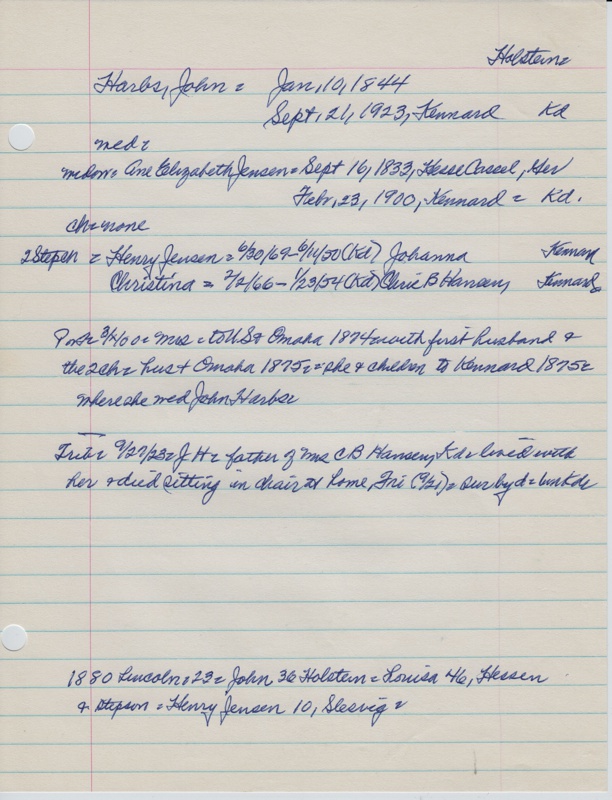 Holstein=
Harbs, John = Jan, 10, 1844
Sept, 21, 1923, Kennard Kd
med=
widow= Ane Elizabeth Jensen= Sept 16, 1833, Hesse Cassel, Ger
Febr, 23, 1900, Kennard = Kd.
ch=none
2 Stepch = Henry Jensen = 6/30/69-6/11/50 (Kd) Johanna Kennard
Christina = 2/2/66- 1/23/54 (Kd) Chris B Hansen, Kennard=
3/2/00= Mrs = to US & Omaha 1874=with first husband &
the 2ch= hus + Omaha 1875= =she & children to Kennard 1875=
where she med John Harbs=
Trib= 9/27/23= J H = father of Mrs C B Hansen, Kd= lived with
her & died sitting in chair at home, Fri (9/21)= sur by d= bur Kd=
1880 Lincoln=23= John 36 Holstein= Louisa 46, Hessen
& stepson = Henry Jensen 10, Slesvig =